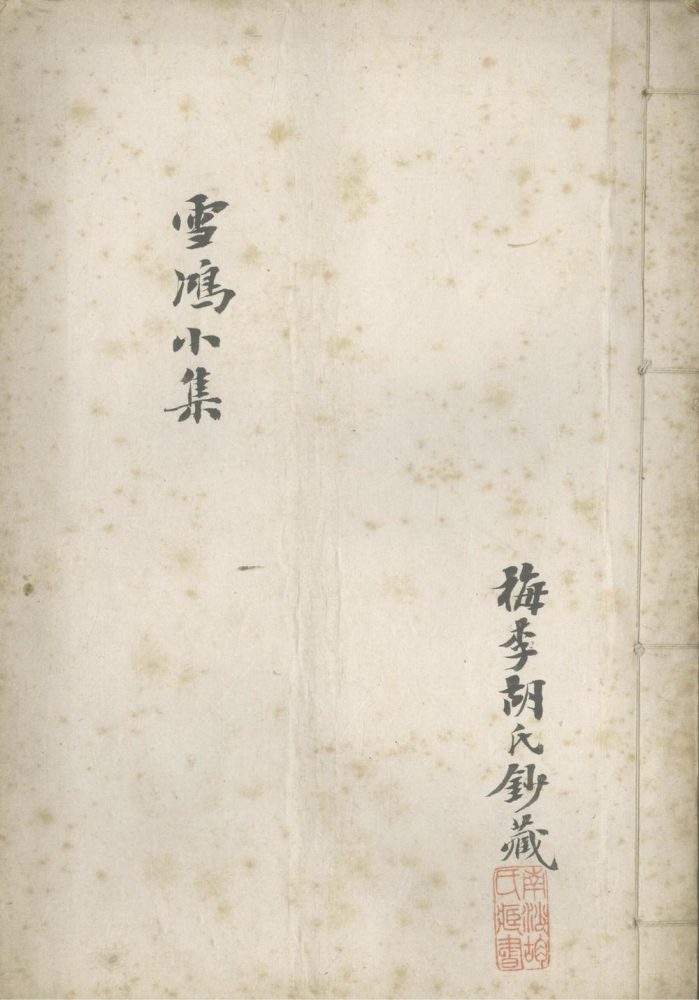 雪鴻小集
梅李胡氏鈔藏
南海胡
氏藏書